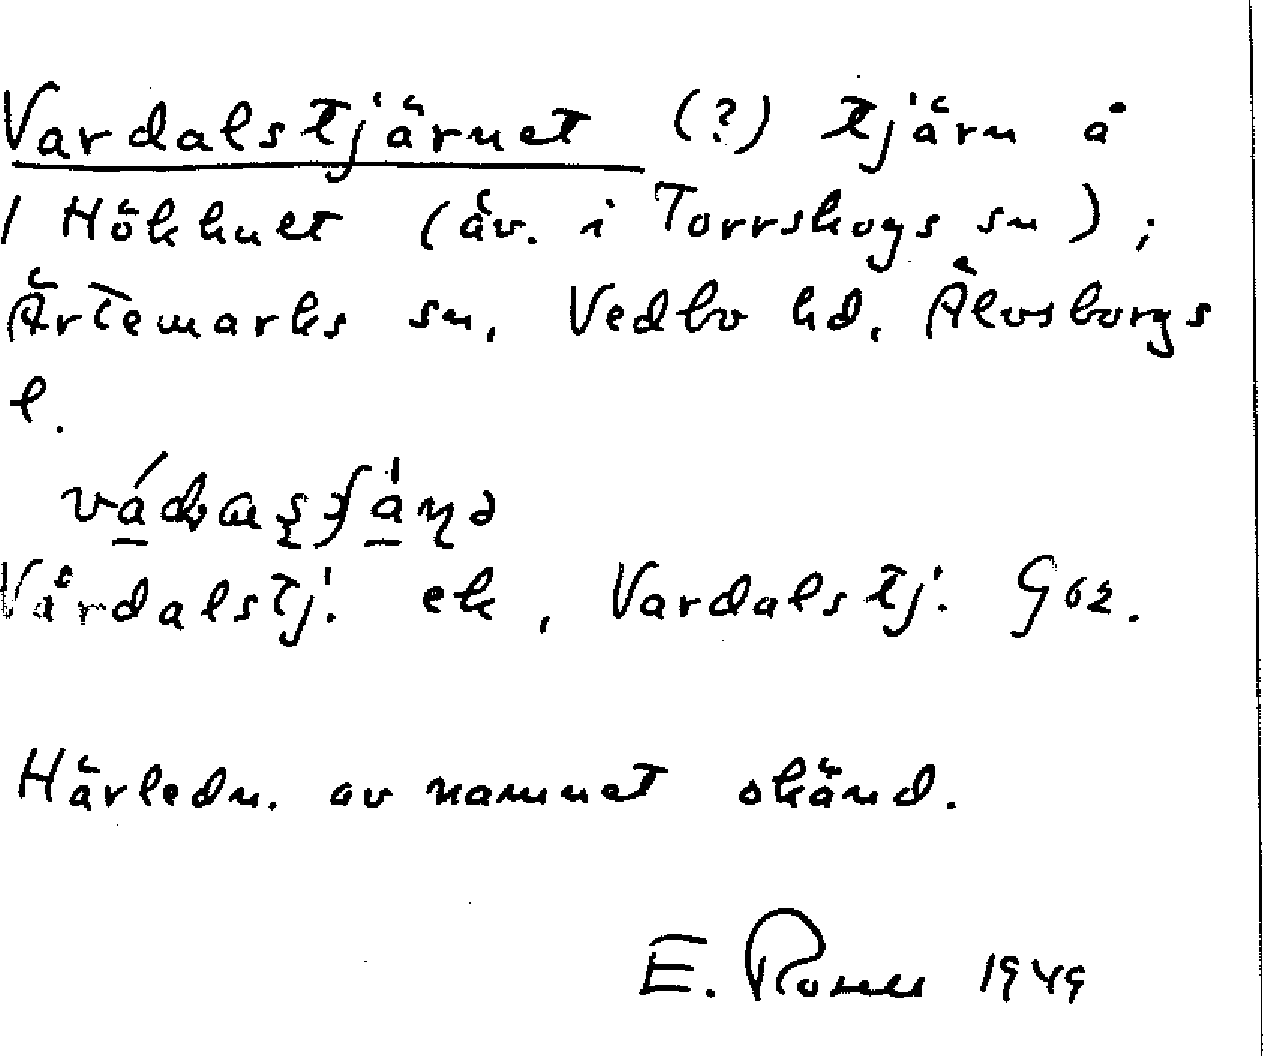 Vardalstjärnet (?) tjärn å
1 Hökhult (äv. i Torrskogs sn);
Ärtemarks sn, Vedbo hd, Älvsborgs
l.
Vårdalstj. ek, Vardalstj. Goz.
Härledn. av namnet okänd.
E. 1949